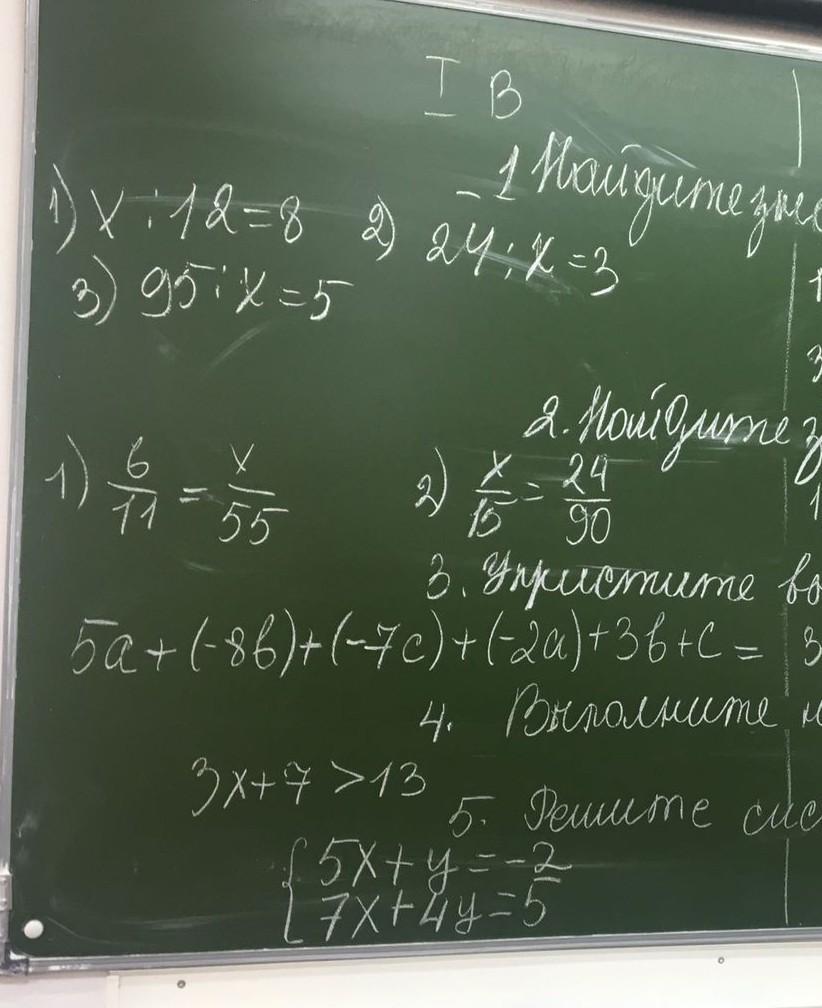 I В
1 Найдите
1) x : 12 = 8 2) 24 : x = 3
3) 95 : x = 5
2. Найдите
1) 6/11 = x/55 2) x/15 = 24/90
3. Упристите
5a + (-8b) + (-7c) + (-2a) + 3b + c =
4. Выполните
3x + 7 > 13
5. Решите
{ 5x + y = -2
7x + 4y = 5